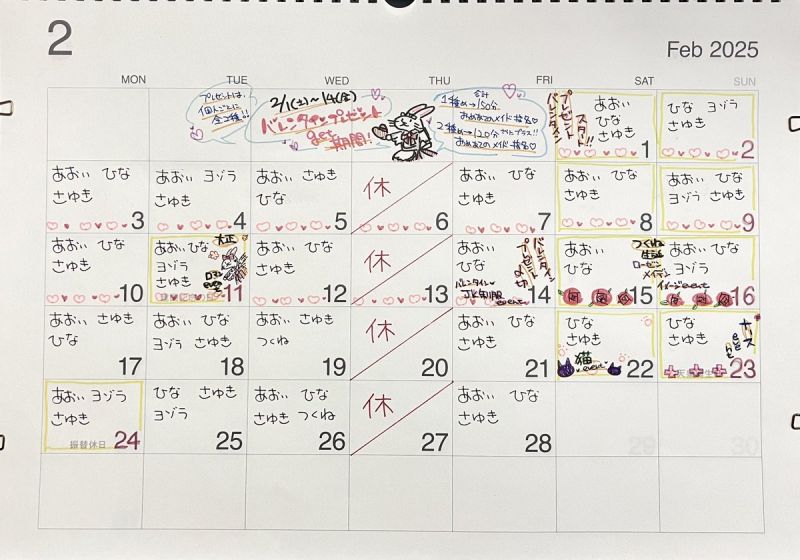 2
Feb 2025
MON TUE WED THU FRI SAT SUN
プレゼントは、
個人ごとに
全2種!!
2/1(土)~14(金)
バレンタインプレゼント
get
期間!
合計
1種め→150分
おめあてのメイド指名♡
2種め→120分
プラス!!
おめあてのメイド指名♡
バレンタイン
プレゼント
スタート!!
あおい
ひな
さゆき
1
ひな ヨヅラ
さゆき
2
あおい ひな
さゆき
3
あおい ヨヅラ
さゆき
4
あおい さゆき
ひな
5
休
6
あおい ひな
さゆき
7
あおい ひな
さゆき
8
あおい ひな
ヨヅラ さゆき
9
あおい ひな
さゆき
10
あおい ひな
ヨヅラ
さゆき
大正
ロマン
11
あおい ひな
さゆき
12
休
13
あおい
ひな
バレンタイン
プレゼント
〆切
バレンタイン
JK制服
event
14
あおい
ひな
つくね
生誕
ローゼン
メイデン
15
あおい ひな
ヨヅラ
さゆき
イメージevent
16
あおい さゆき
ひな
17
あおい ひな
ヨヅラ さゆき
18
あおい さゆき
つくね
19
休
20
あおい ひな
さゆき
21
ひな
さゆき
猫
event
22
ひな
さゆき
ナース
23
あおい ヨヅラ
さゆき
振替休日
24
ひな さゆき
ヨヅラ
25
あおい ひな
さゆき つくね
26
休
27
あおい ひな
さゆき
28
29
30